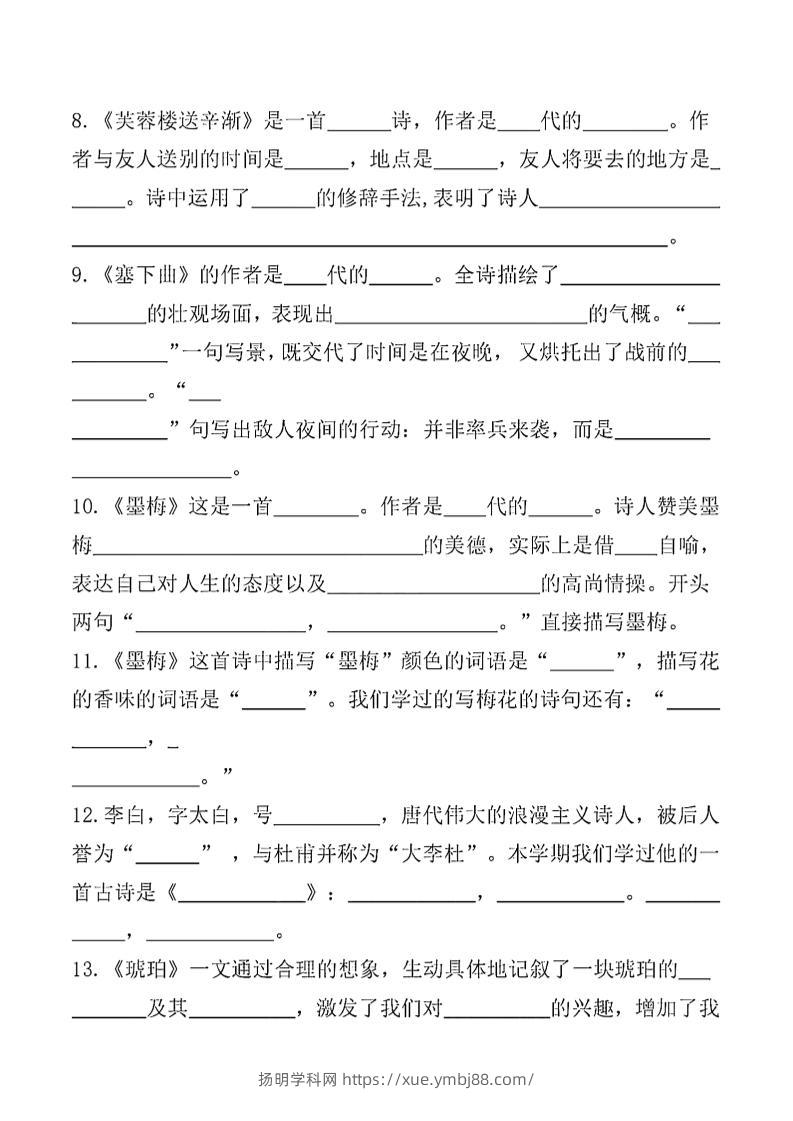 8.《芙蓉楼送辛渐》是一首______诗，作者是____代的________。作
者与友人送别的时间是______，地点是______，友人将要去的地方是_
_____。诗中运用了______的修辞手法,表明了诗人_________________
________________________________________________________。
9.《塞下曲》的作者是____代的______。全诗描绘了_______________
_______的壮观场面，表现出________________________的气概。“___
_________”一句写景，既交代了时间是在夜晚， 又烘托出了战前的___
_______。“___
_________”句写出敌人夜间的行动：并非率兵来袭，而是_________
_______________。
10.《墨梅》这是一首________。作者是____代的______。诗人赞美墨
梅_______________________________的美德，实际上是借____自喻，
表达自己对人生的态度以及____________________的高尚情操。开头
两句“________________，________________。”直接描写墨梅。
11.《墨梅》这首诗中描写“墨梅”颜色的词语是“______”，描写花
的香味的词语是“______”。我们学过的写梅花的诗句还有：“_____
_______，_
____________。”
12.李白，字太白，号__________，唐代伟大的浪漫主义诗人，被后人
誉为“______” ，与杜甫并称为“大李杜”。本学期我们学过他的一
首古诗是《____________》：____________，____________。_______
_____，____________。
13.《琥珀》一文通过合理的想象，生动具体地记叙了一块琥珀的___
_______及其__________，激发了我们对__________的兴趣，增加了我
扬明学科网 https://xue.ymbj88.com/